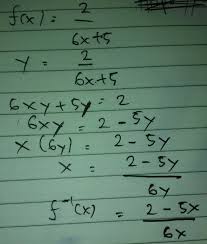 f(x) = 2/6x+5
y = 2/6x+5
6xy + 5y = 2
6xy = 2 - 5y
x (6y) = 2 - 5y
x = 2 - 5y/6y
f⁻¹(x) = 2 - 5x/6x